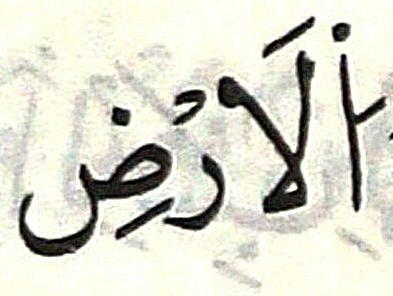 اَلَارْضِ